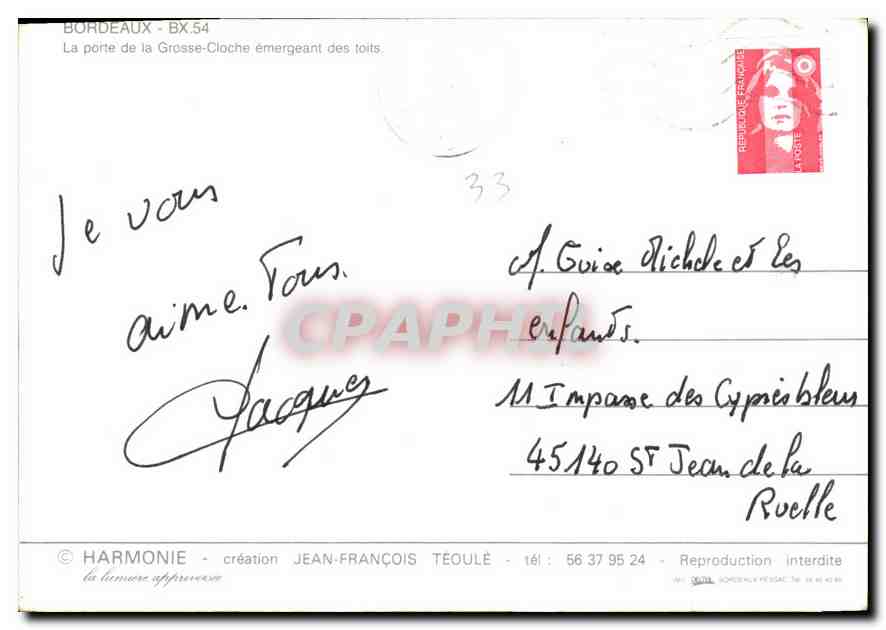 BORDEAUX - BX.54
La porte de la Grosse-Cloche émergeant des toits.
RÉPUBLIQUE FRANÇAISE
LA POSTE
33
Je vous
aime. Tous.
Jacques
M. Guise Michele et Les
enfants.
11 Impasse des Cyprès bleus
45140 ST Jean de la
Ruelle
CPAPHIL
© HARMONIE - création JEAN-FRANÇOIS TÉOULÉ - tél : 56 37 95 24 - Reproduction interdite
la lumière apprivoisée
BORDEAUX PESSAC Tél.